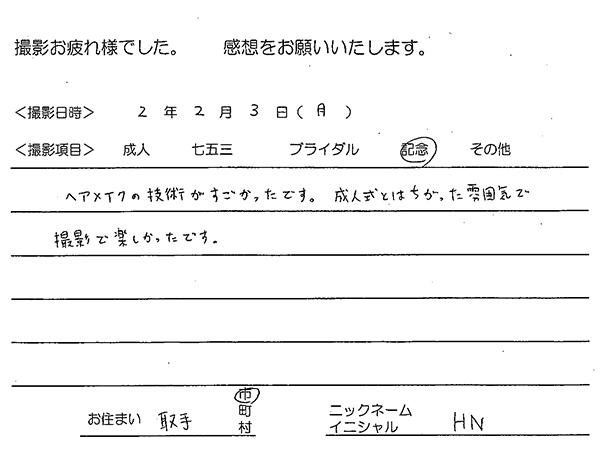 撮影お疲れ様でした。　感想をお願いいたします。
＜撮影日時＞　2 年 2 月 3 日(月)
＜撮影項目＞　成人　七五三　ブライダル　記念　その他
ヘアメイクの技術がすごかったです。成人式とはちがった雰囲気で
撮影で楽しかったです。
お住まい　取手　市町村　ニックネーム イニシャル　HN